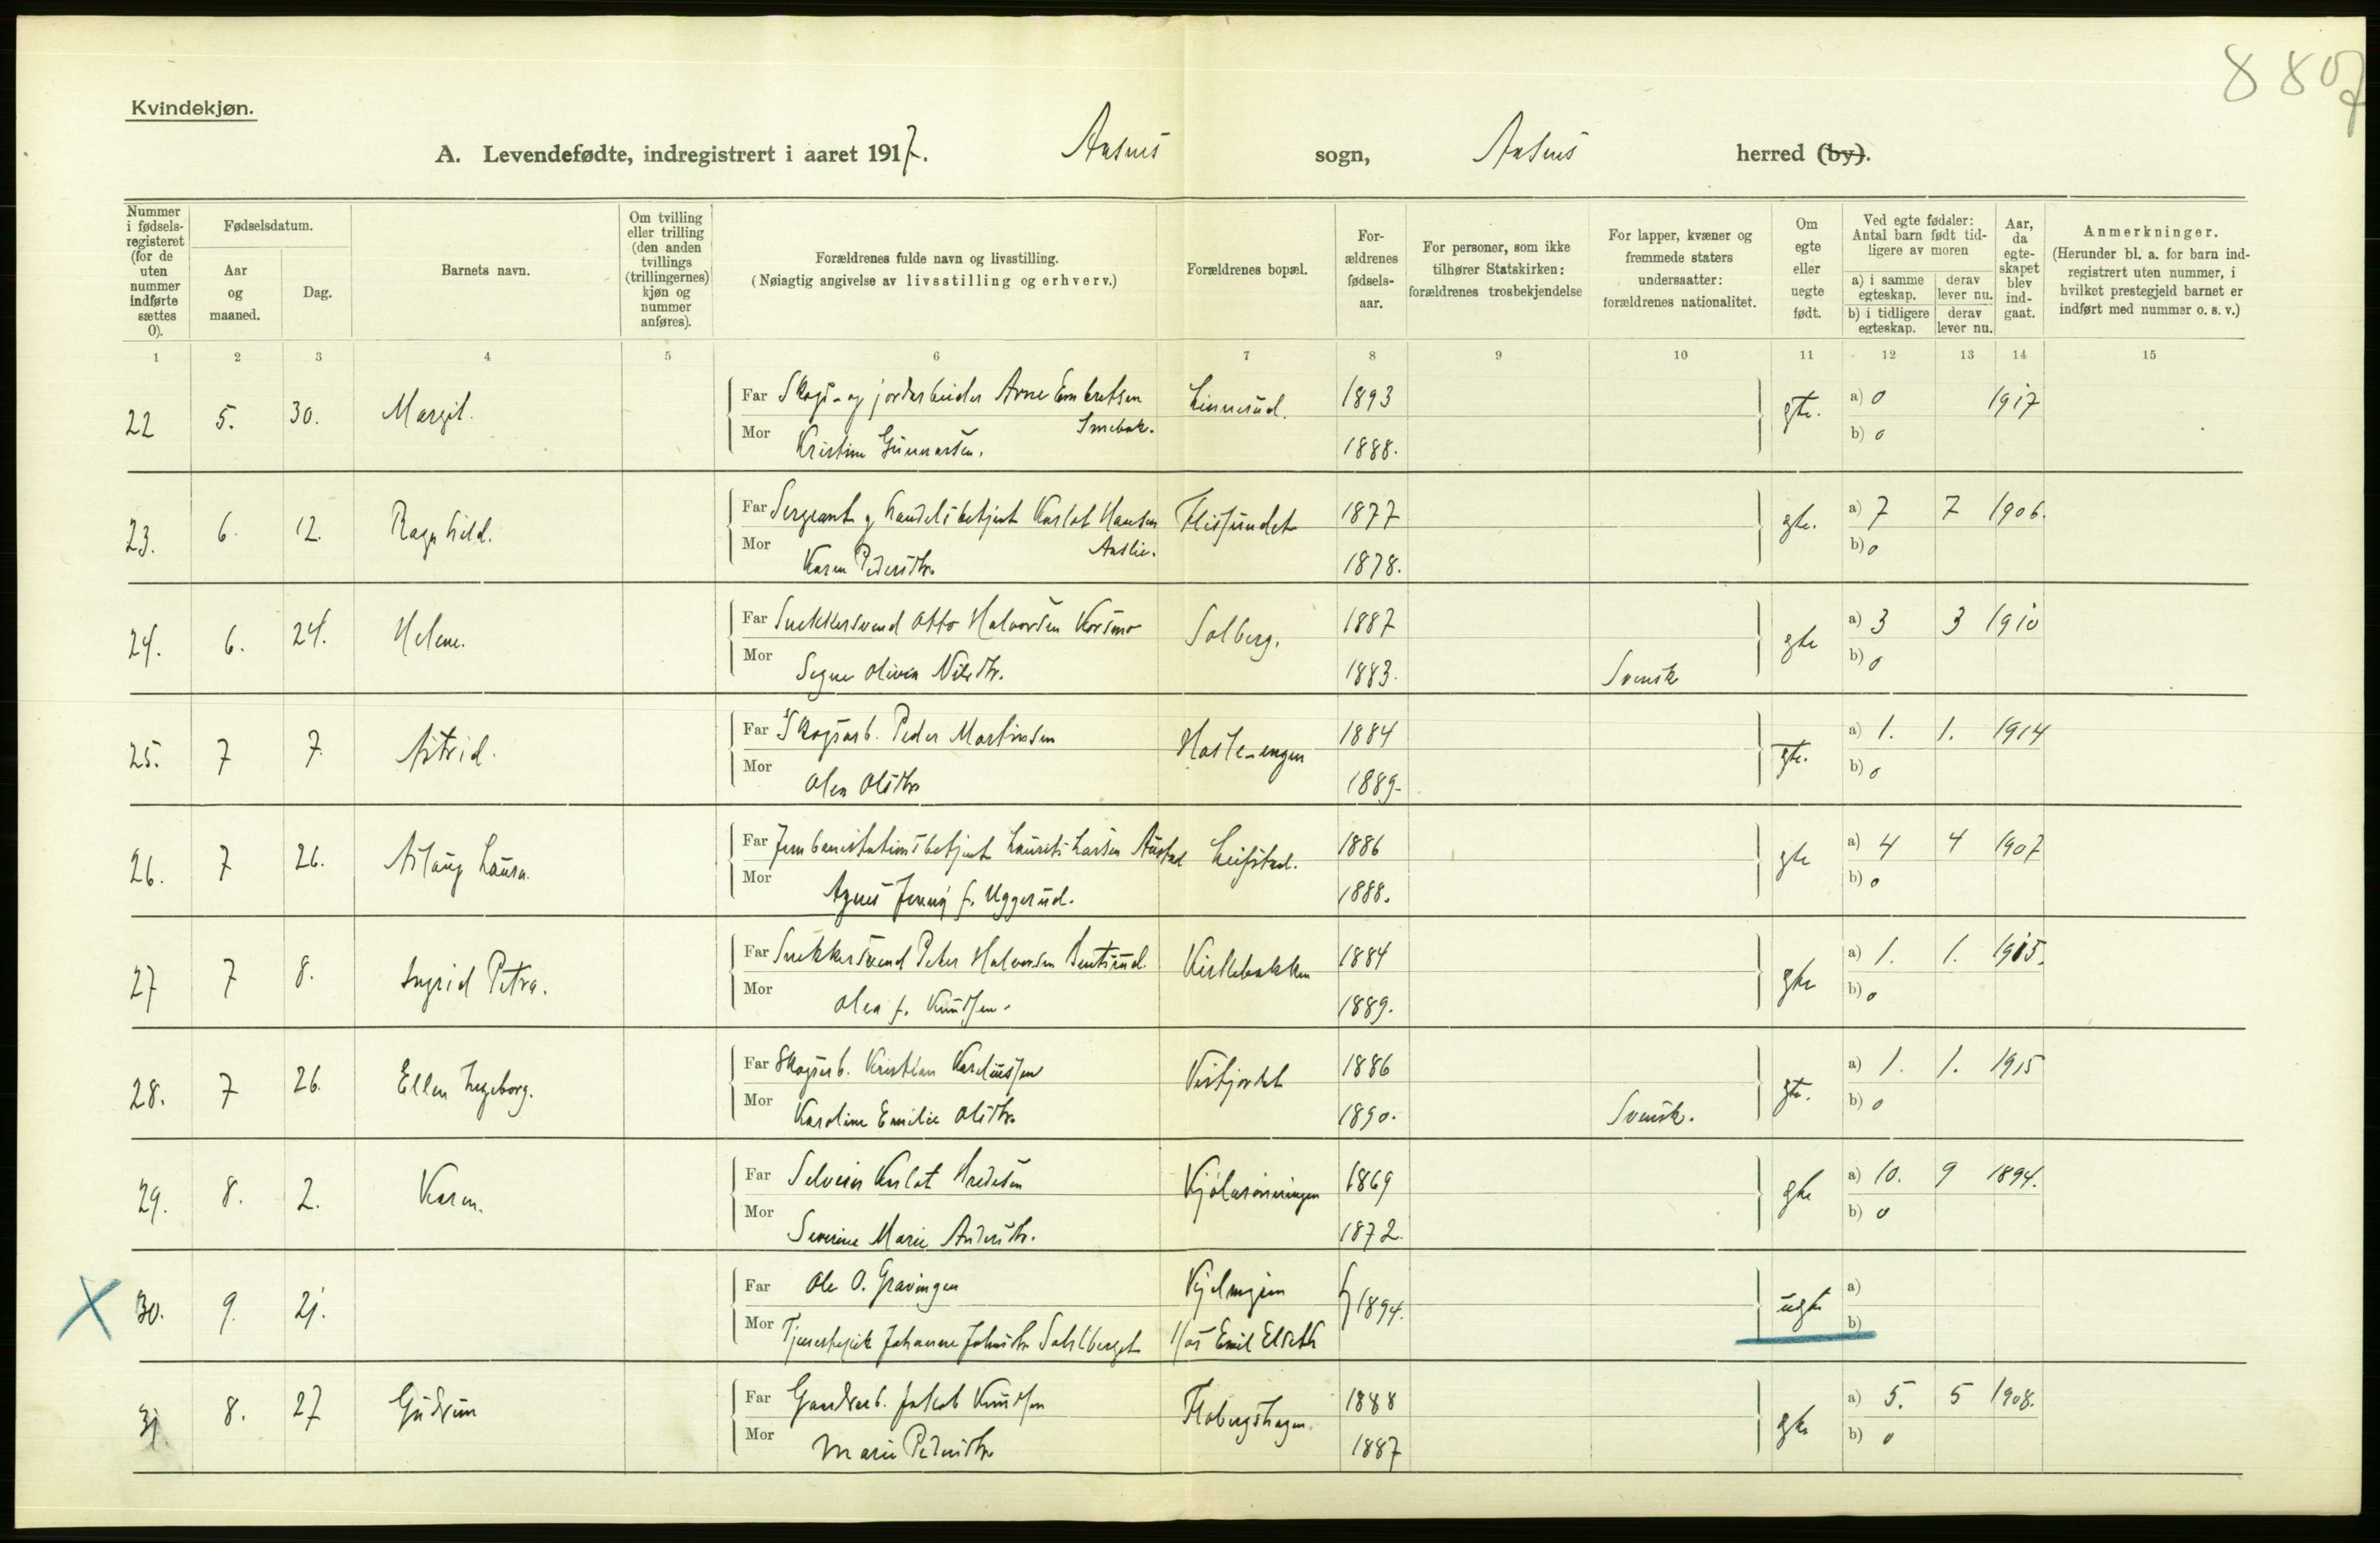 8807
Kvindekjøn.
A. Levendefødte, indregistrert i aaret 1917. Aasnes sogn, Aasnes herred (by).
Nummer i fødsels-registeret (for de uten nummer indførte sættes 0).
Fødselsdatum.
Aar og maaned.
Dag.
Barnets navn.
Om tvilling eller trilling (den anden tvillings (trillingernes) kjøn og nummer anføres).
Forældrenes fulde navn og livsstilling.
(Nøiagtig angivelse av livsstilling og erhverv.)
Forældrenes bopæl.
For-ældrenes fødsels-aar.
For personer, som ikke tilhører Statskirken: forældrenes trosbekjendelse
For lapper, kvæner og fremmede staters undersaatter: forældrenes nationalitet.
Om egte eller uegte født.
Ved egte fødsler: Antal barn født tid-ligere av moren
a) i samme egteskap. derav lever nu.
b) i tidligere egteskap. derav lever nu.
Aar, da egte-skapet blev ind-gaat.
Anmerkninger.
(Herunder bl. a. for barn ind-registrert uten nummer, i hvilket prestegjeld barnet er indført med nummer o. s. v.)
1 2 3 4 5 6 7 8 9 10 11 12 13 14 15
22 5. 30. Margit. Far Skogs- og jordarbeider Arne Embretsen Linnerud. 1893 gte. a) 0 1917
Smebak.
Mor Kristine Gunnarsen. 1888. b) 0
23. 6. 12. Ragnhild. Far Sergeant og handelsbetjent Karlot Hansen Flisundet 1877 gte. a) 7 7 1906.
Aaslie.
Mor Karen Pedersdtr. 1878. b) 0
24. 6. 24. Helene. Far Snekkersvend Otto Halvorsen Korsmo Solberg. 1887 gte a) 3 3 1910
Mor Signe Olivia Nilsdtr. 1883. Svensk b) 0
25. 7 7. Astrid. Far Skogsarb. Peder Martinsen Hasle-engen 1884 gte. a) 1. 1. 1914
Mor Olea Olsdtr. 1889. b) 0
26. 7 26. Aslaug Laura. Far Jernbanestationsbetjent Laurits Larsen Austad Leifstad. 1886 gte a) 4 4 1907
Mor Agnes Jenny f. Uggerud. 1888. b) 0
27 7 8. Ingrid Petra. Far Snekkersvend Peter Halvorsen Berntsrud. Kirkebakken 1884 gte a) 1. 1. 1915.
Mor Olea f. Knudsen. 1889. b) 0
28. 7 26. Ellen Ingeborg. Far Skogsarb. Kristian Kareliussen 1886 gte. a) 1. 1. 1915
Mor Karoline Emilie Olsdtr. 1890. Svensk. b) 0
29. 8. 2. Karen. Far Selveier Karlot Hredesen 1869 gte a) 10. 9 1894.
Mor Severine Marie Andersdtr. 1872. b) 0
30. 9. 21. Far Ole O. Gravingen f 1894. uegte a)
Mor Tjenestepike Johanne Johnsdtr. Sahlberget Hos Emil Elseth b)
31. 8. 27 Gudrun Far Gaardsarb. Jakob Knudsen Flobergshagen. 1888 gte a) 5. 5 1908.
Mor Marie Pedersdtr. 1887 b) 0